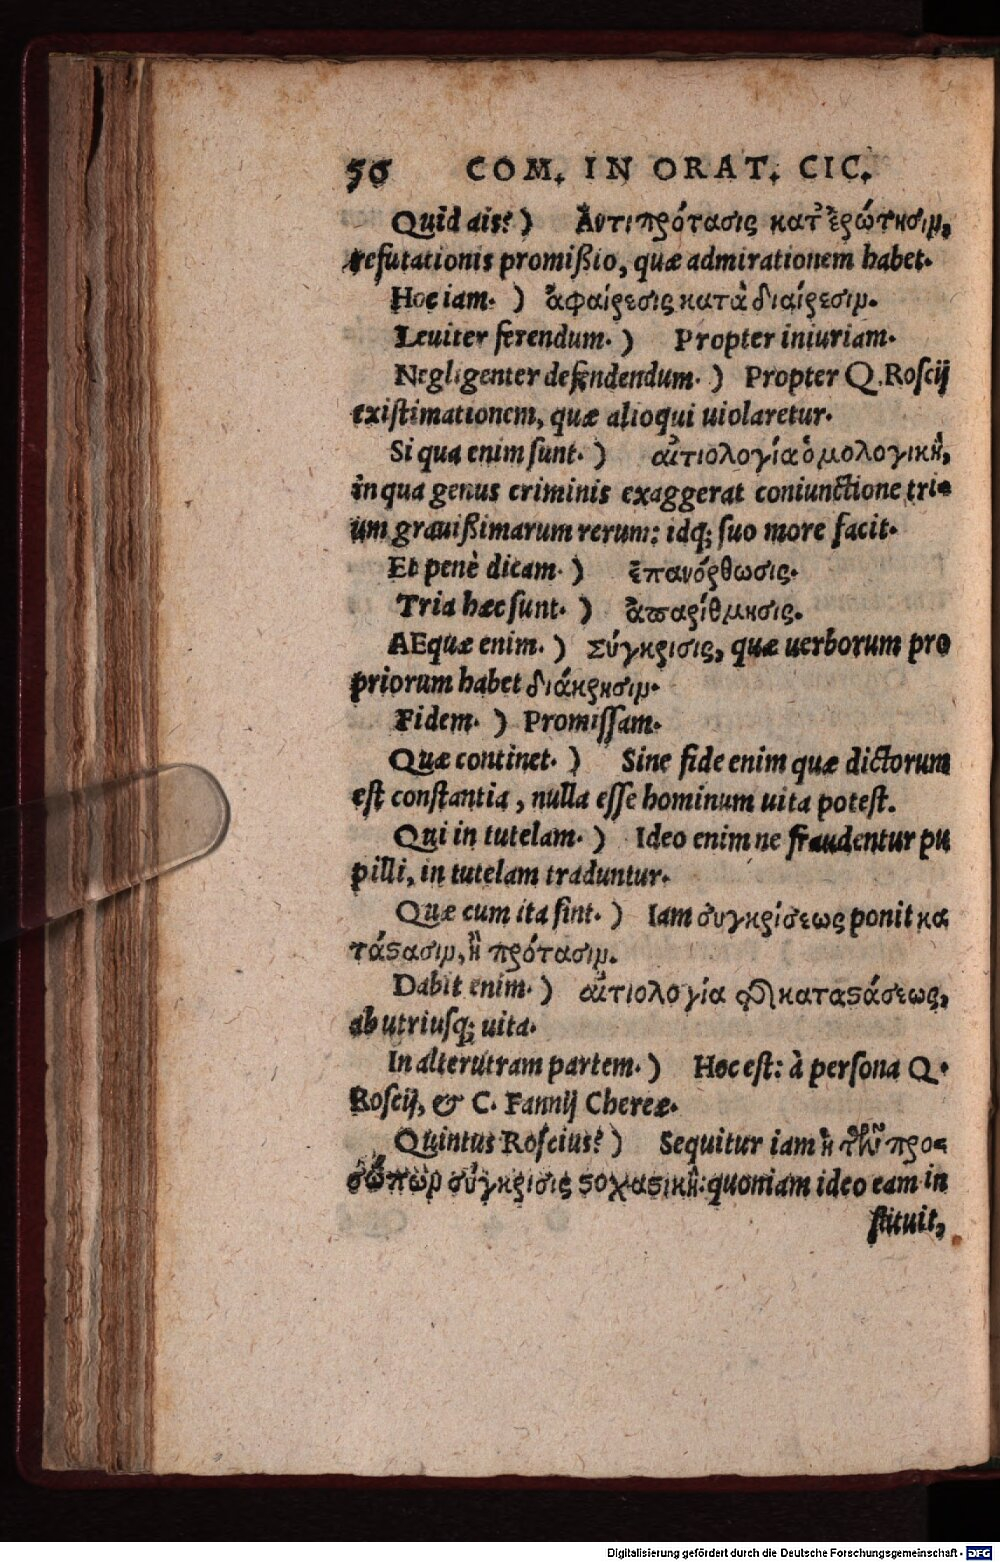 56 COM. IN ORAT. CIC.
Quid ais? ) Ἀντιπρότασις κατ' ἐρώτησιμ,
refutationis promißio, quæ admirationem habet.
Hoc iam. ) ἀφαίρεσις κατὰ διαίρεσιμ.
Leuiter ferendum. ) Propter iniuriam.
Negligenter defendendum. ) Propter Q. Roscij
existimationem, quæ alioqui uiolaretur.
Si qua enim sunt. ) αἰτιολογία ὁμολογικὴ,
in qua genus criminis exaggerat coniunctione tri-
um grauißimarum rerum: idq; suo more facit.
Et penè dicam. ) ἐπανόρθωσις.
Tria hæc sunt. ) ἀπαρίθμησις.
AEquæ enim. ) Σύγκρισις, quæ uerborum pro
priorum habet διάκρησιμ.
Fidem. ) Promissam.
Quæ continet. ) Sine fide enim quæ dictorum
est constantia, nulla esse hominum uita potest.
Qui in tutelam. ) Ideo enim ne fraudentur pu
pilli, in tutelam traduntur.
Quæ cum ita sint. ) Iam συγκρίσεως ponit κα
τάϛασιμ, ἢ πρότασιμ.
Dabit enim. ) αἰτιολογία τῆς καταϛάσεως,
ab utriusq; uita.
In alterutram partem. ) Hoc est: à persona Q.
Roscij, & C. Fannij Chereæ.
Quintus Roscius? ) Sequitur iam ἡ τῶν προ-
σώπωμ σύγκρισις ϛοχαϛικὴ: quoniam ideo eam in
stituit,
Digitalisierung gefördert durch die Deutsche Forschungsgemeinschaft - DFG